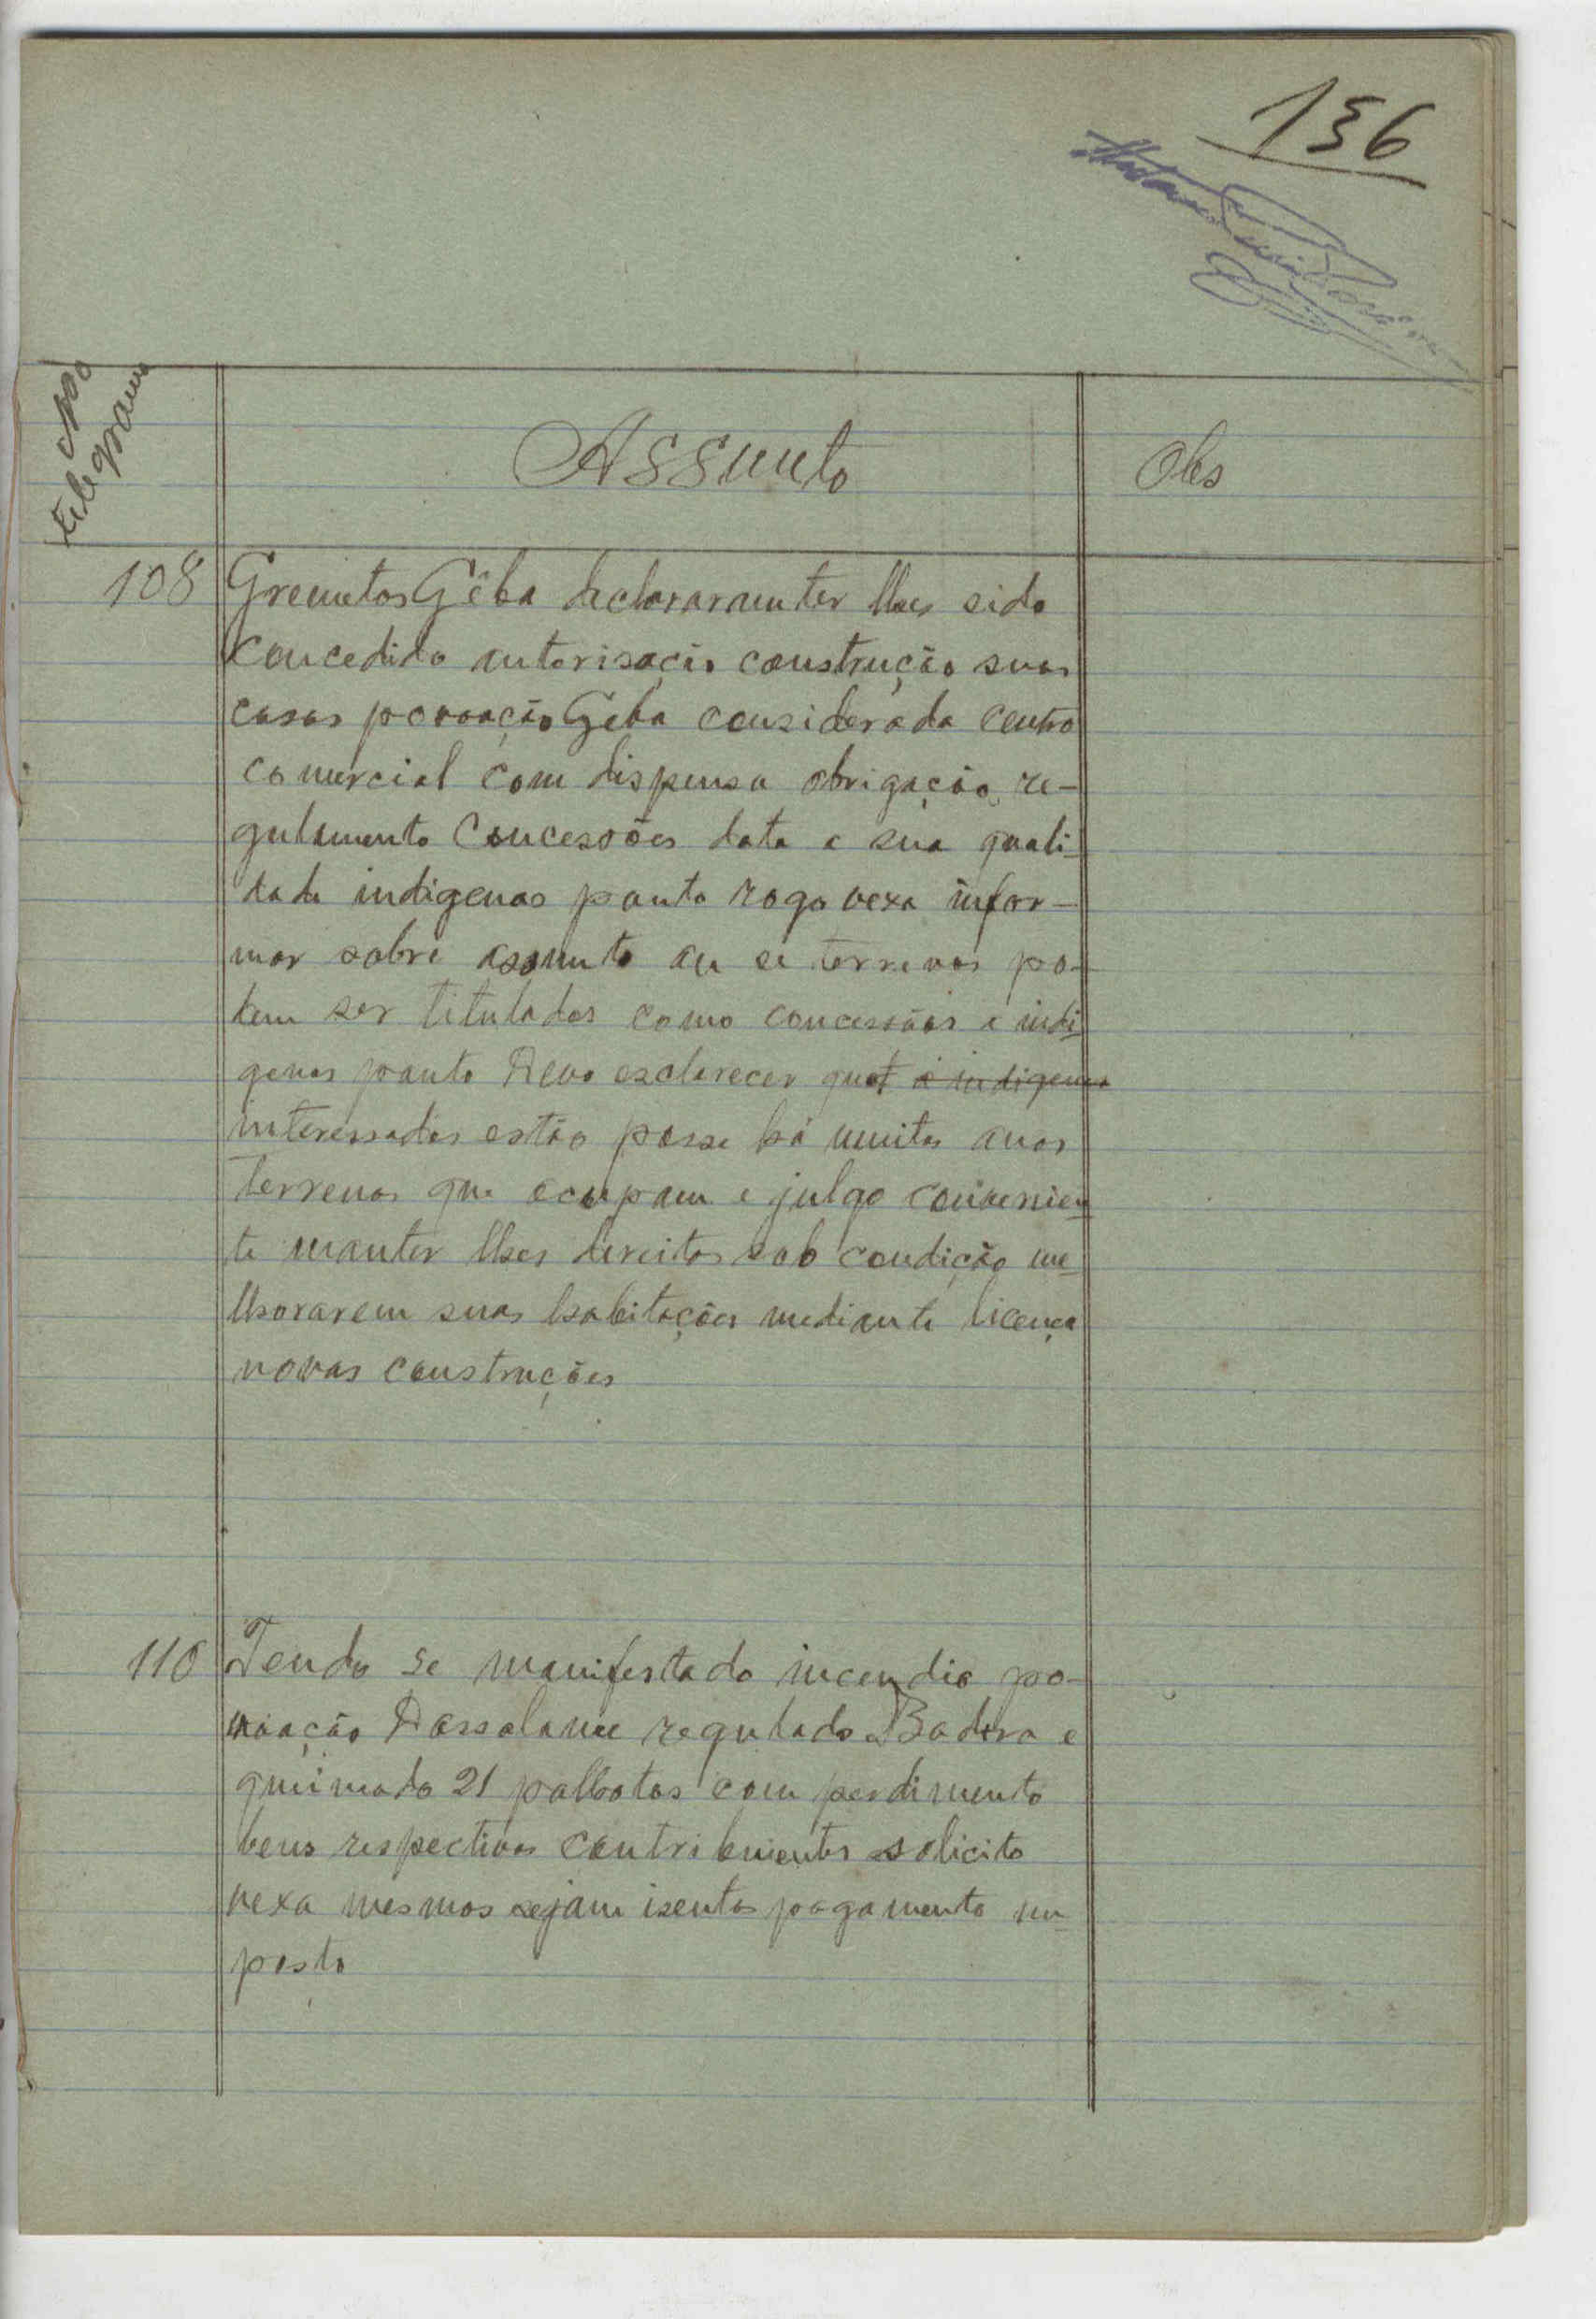 136
Nº telegrama
Assunto
Obs
108 Grumetos Gêba declararam ter lhes sido
concedido autorisação construção suas
casas povoação Geba considerada centro
comercial com dispensa obrigação re-
gulamento concessões data a sua quali-
dade indigenas ponto rogo vexa infor-
mar sobre assunto ou se terrenos po-
dem ser titulados como concessões a indi-
genas ponto Devo esclarecer que a indigenas
interessados estão posse há muitos anos
terrenos que ocupam e julgo convenien-
te manter lhes direitos sob condição me-
lhorarem suas habitações mediante licença
novas construções
110 Tendo se manifestado incendio po-
voação regulado Badora e
queimado 21 palhotas com perdimento
bens respectivos contribuientes solicito
vexa mesmos sejam isentos pagamento im-
posto